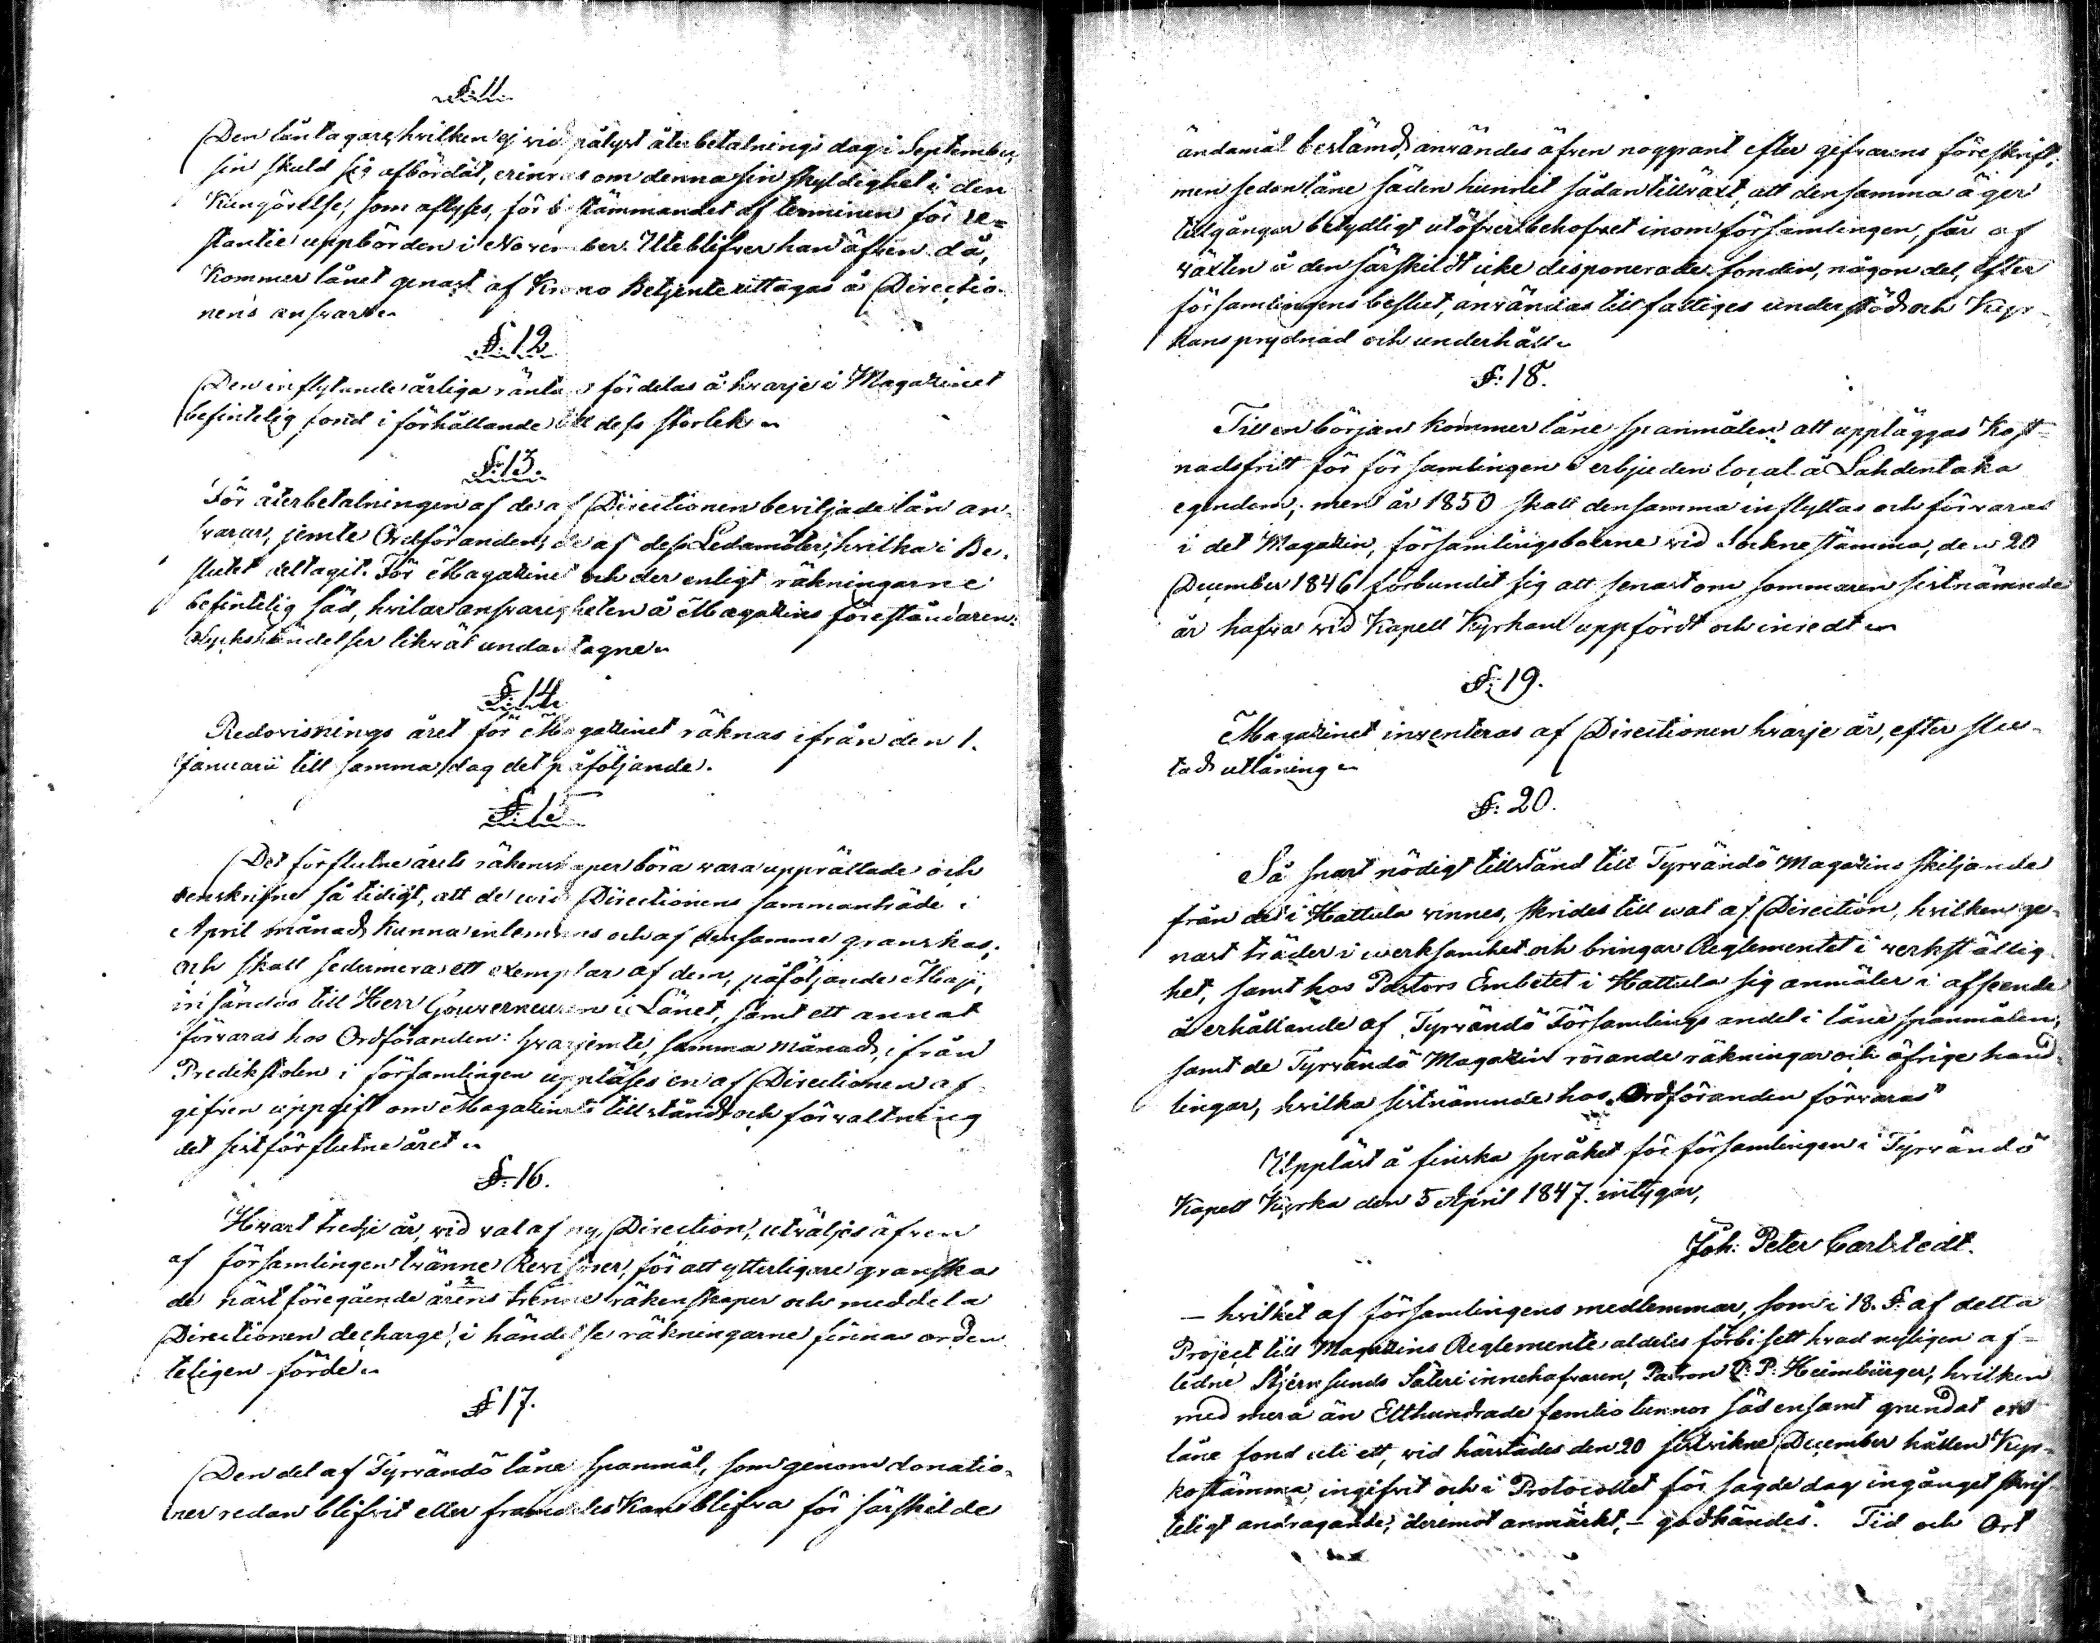 §. 11.
Den låntagare, hvilken ej vid pålyst återbetalnings dag i September,
sin skuld sig afbördat, erinras om denna sin skyldighet i den
Kungörelse, som aflyses, för bestämmandet af terminen för re=
stantie uppbörden i November. Uteblifver han äfven då,
Kommer lånet genast af Krono Betjente uttagas å Directio-
nens ansvar.
§. 12
Den inflytande årliga räntan fördelas å hvarje i Magazinet
befintelig fond i förhållande till dess storlek.
§. 13.
För återbetalningen af de af Directionen beviljade lån an-
svarar, jemte Ordföranden, de af dess Ledamöter, hvilka i Be-
slutet deltagit. För Magazinet och der enligt räkningarne
befintelig säd, hvilar ansvarigheten å Magazins föreståndaren.
Olyckshändelser likväl undantagne.
§. 14.
Redovisnings året för Magazinet räknas ifrån den 1.
Januarii till samma dag det påföljande.
§. 15
Det förflutne årets räkenskaper böra vara upprättade och
renskrifne så tidigt, att de vid Directionens sammanträde i
April månad, kunna inlemnas och af densamme granskas;
och skall sedermera ett exemplar af dem, påföljande Maji,
insändas till Herr Gouverneuren i Länet, samt ett annat
förvaras hos Ordföranden: hvarjemte, samma månad, ifrån
Predikstolen i församlingen uppläses en af Directionen af-
gifven uppgift om Magazinets tillstånd och förvaltning
det sistförflutne året.
§. 16.
Hvart tredje år, vid val af ny Direction, utväljes äfven
af församlingen tvänne Revisorer, för att ytterligare granska
de näst föregående årens trenne räkenskaper och meddela
Directionen decharge, i händelse räkningarne finnas orden
teligen förde.
§ 17.
Den del af Tyrvändö låne spanmål, som genom donatio-
ner redan blifvit eller framdeles Kan blifva för särskilde
ändamål bestämd, användes äfven noggrant efter gifvarens föreskrift;
men sedan låne säden hunnit sådan tillväxt, att densamma äger
tillgångar betydligt utöfver behofvet inom församlingen, får af
växten å den särskildt icke disponerade fonden, någon del, efter
församlingens beslut, användas till fattiges understöd och Kyr-
kans prydnad och underhåll.
§. 18.
Till en början kommer låne spanmålen att uppläggas Kost=
nadsfritt för församlingen i erbjuden local å Lahdentaka
egendom; men år 1850 skall densamma inflyttas och förvaras
i det Magazin, församlingsboerne vid Sockne stämma, den 20
December 1846 förbundit sig att senast om sommaren sistnämnde
år hafva vid Kapell Kyrkan uppfördt och inredt.
§. 19.
Magazinet inventeras af Directionen hvarje år, efter slu-
tad utlåning.
§. 20.
Så snart nödigt tillstånd till Tyrvändö Magazins skiljande
från det i Hattula vinnes, skrides till val af Direction, hvilken ge-
nast träder i verksamhet och bringar Reglementet i verkställig
het, samt hos Pastors Embetet i Hattula sig anmäler i afseende
å erhållande af Tyrvändö Församlings andel i låne spanmålen,
samt de Tyrvändö Magazin rörande räkningar och öfrige hand-
lingar, hvilka sistnämnde hos Ordföranden förvaras"
Uppläst å finska språket för församlingen i Tyrvändö
Kapell Kyrka den 5 April 1847. intygar,
Joh: Peter Carlstedt.
– hvilket af församlingens medlemmar, som i 18. §. af detta
Project till Magazins Reglemente aldeles förbisett hvad nyligen af-
ledne Stjernsunds Säteri innehafvaren, Patron P: P: Heimbürger, hvilken
med mera än Etthundrade femtio tunnor säd ensamt grundat en
låne fond uti ett, vid härstädes den 20 sistvikne December hållen Kyr-
kostämma, ingifvit och i Protocollet för sagde dag ingånget skrif
teligt andragande, deremot anmärkt, – godkändes. Tid och Ort